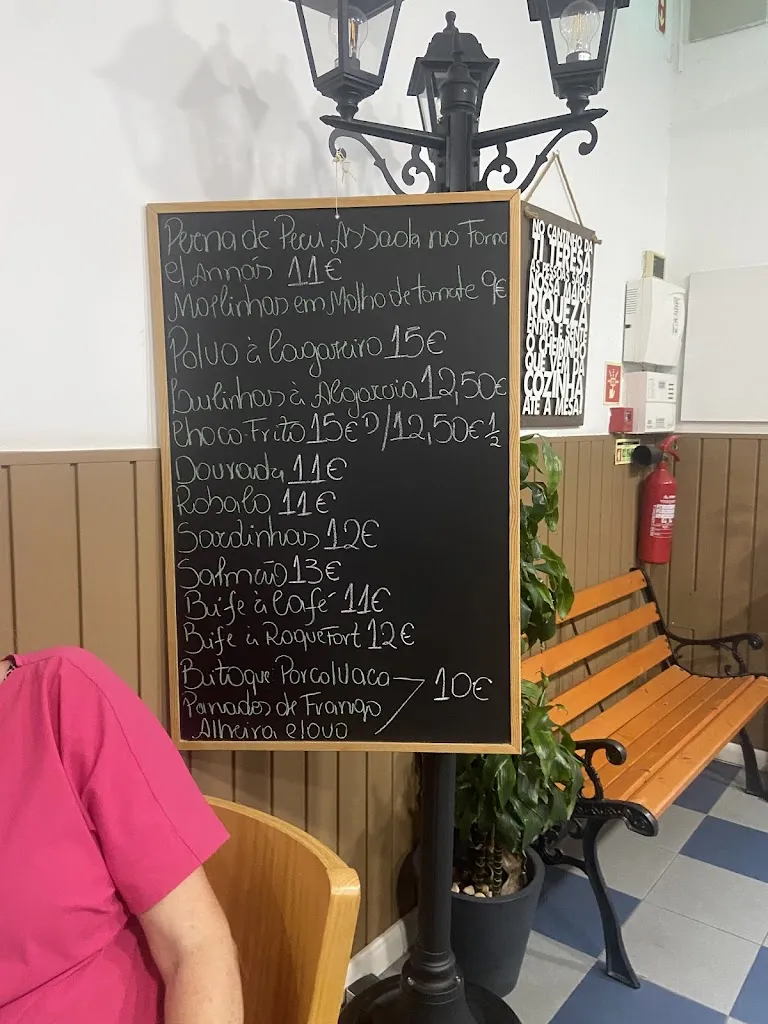 Perna de Peru Assada no Forno
c/ Annás 11€
Moelinhas em Molho de tomate 9€
Polvo à lagareiro 15€
Burlinhas à Algarvia 12,50€
Choco Frito 15€ D/12,50€ 1/2
Dourada 11€
Robalo 11€
Sardinhas 12€
Salmão 13€
Bife à Café 11€
Bife à Roquefort 12€
Bitoque Porco/Vaca
10€
Panados de Frango
Alheira c/ovo
NO CANTINHO DA
TI TERESA
AS PESSOAS SÃO A
NOSSA MAIOR
RIQUEZA
ENTRA E SENTE
O CHEIRINHO
QUE VEM DA
COZINHA
ATÉ A MESA!